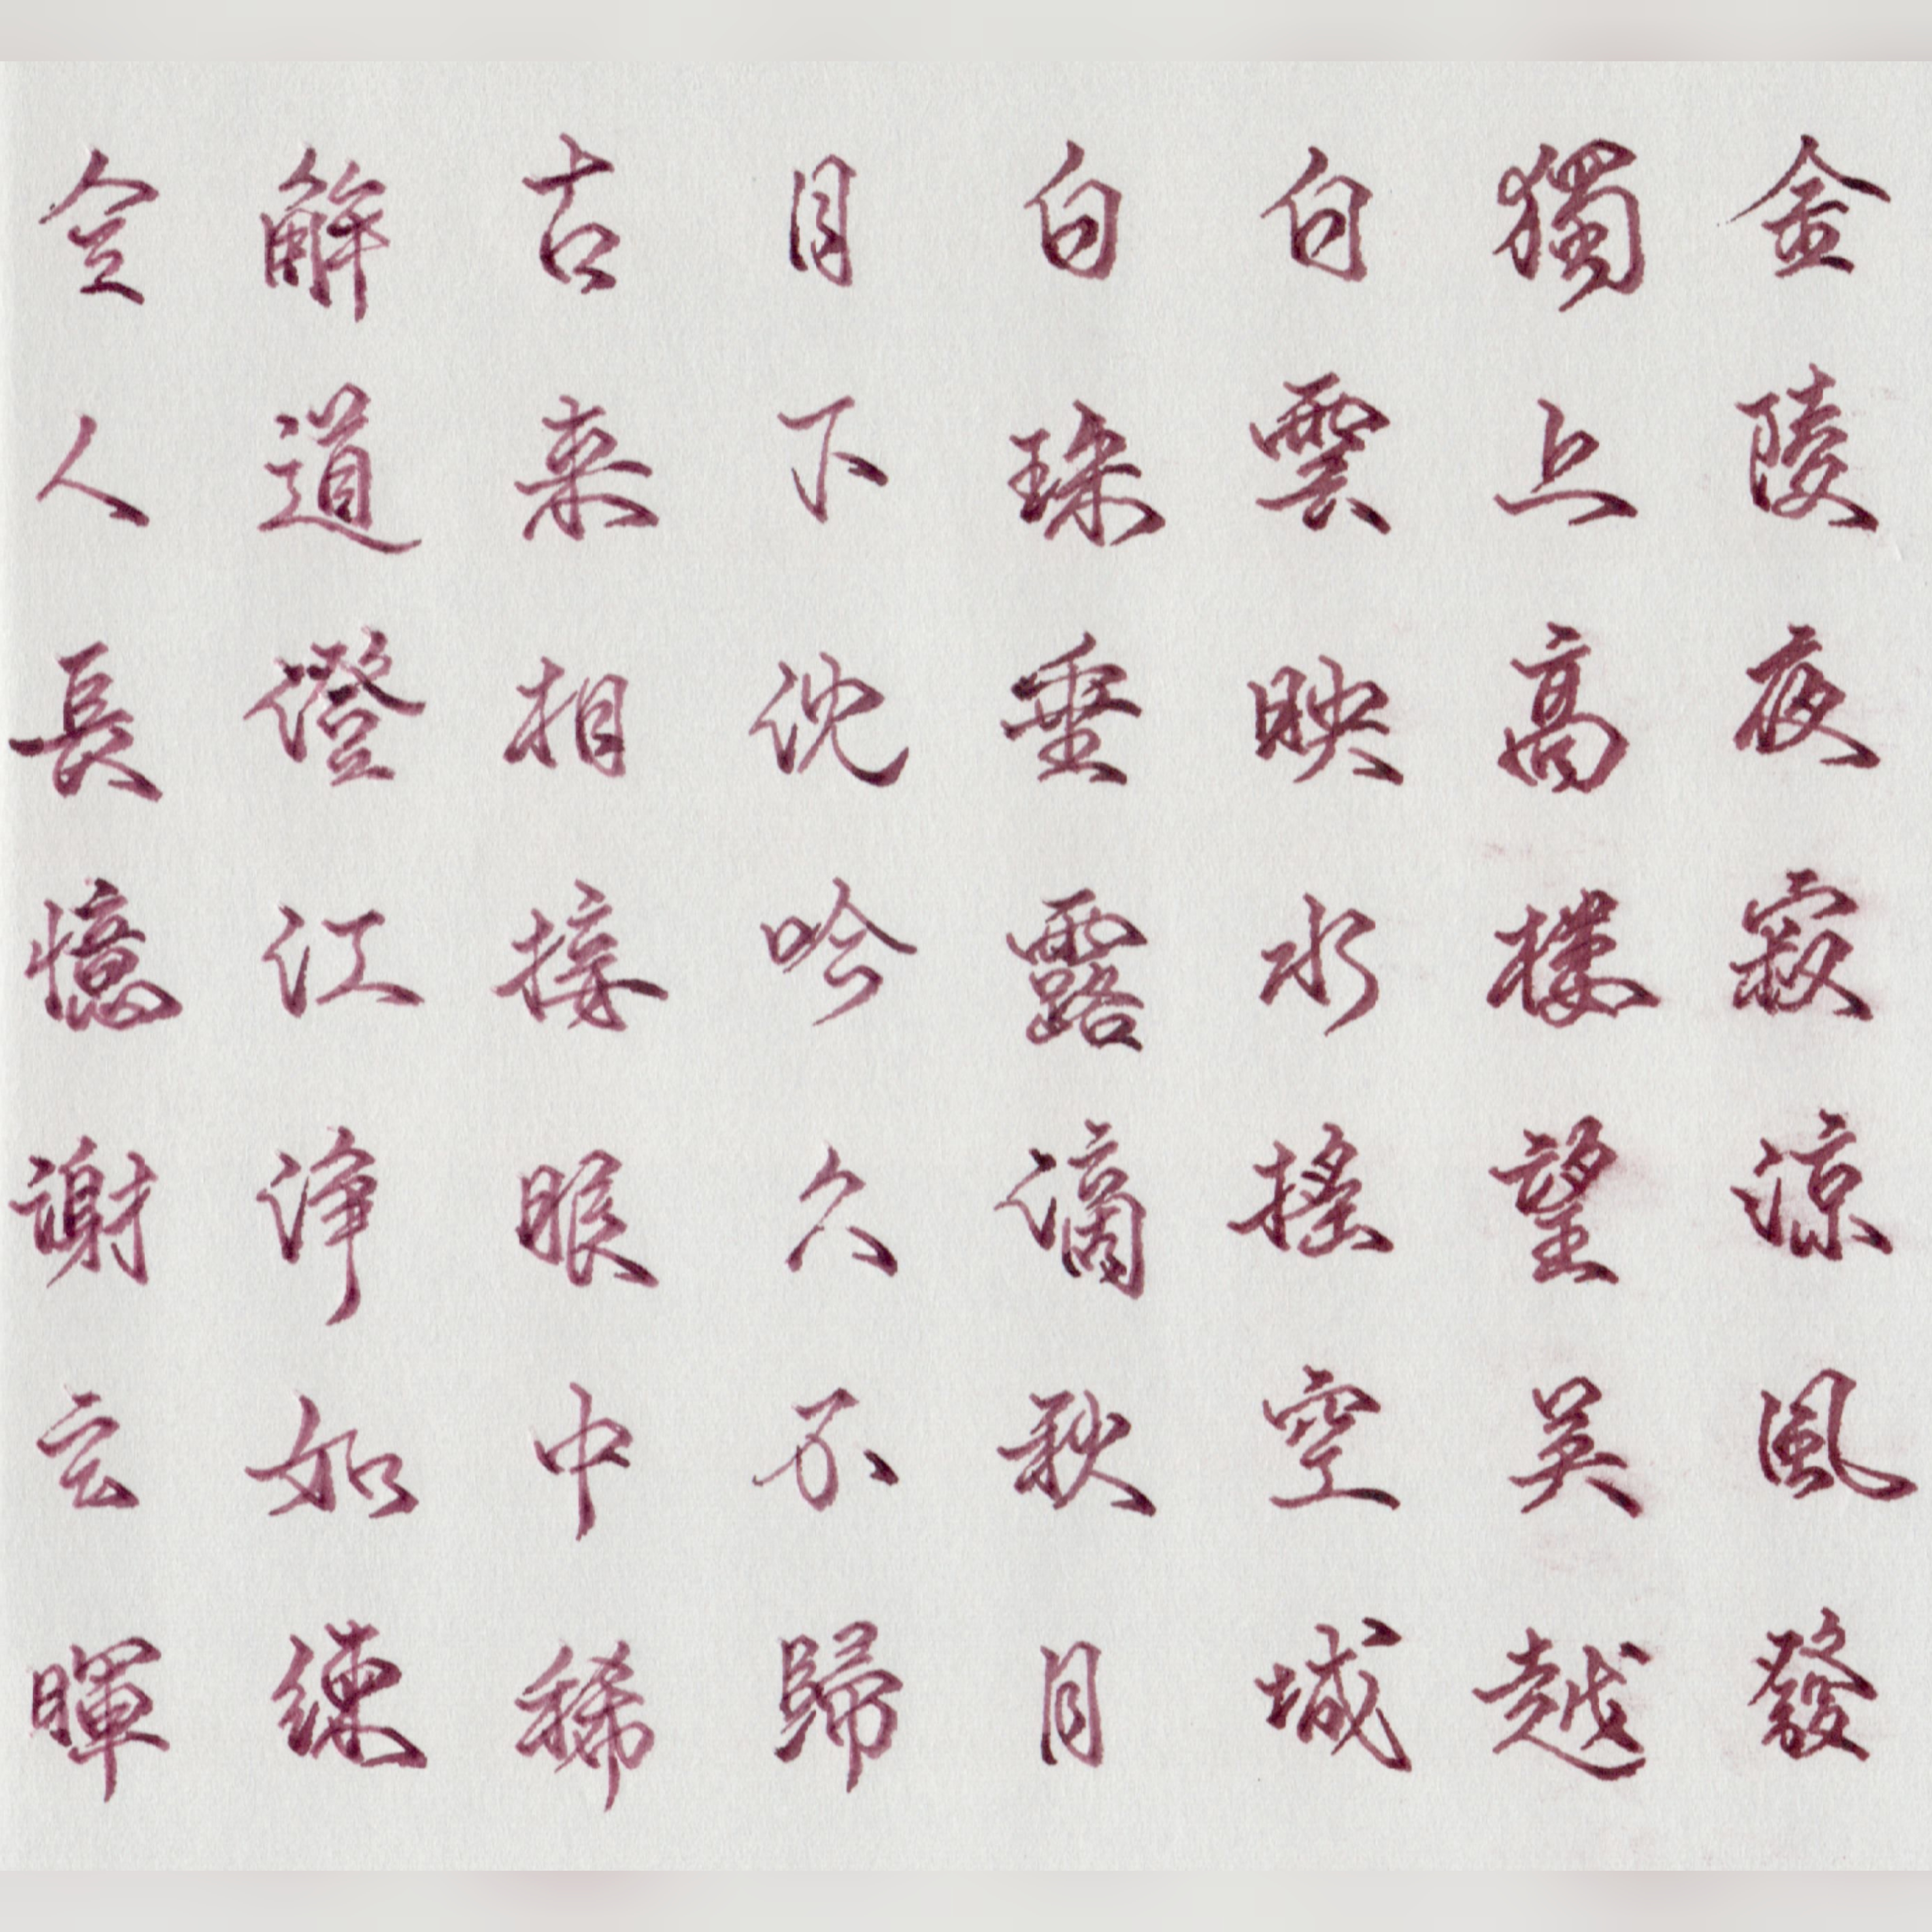 金陵夜寂涼風發
獨上高樓望吳越
白雲映水搖空城
白珠垂露滴秋月
月下沈吟久不歸
古来相接眼中稀
解道澄江淨如練
令人長憶謝玄暉